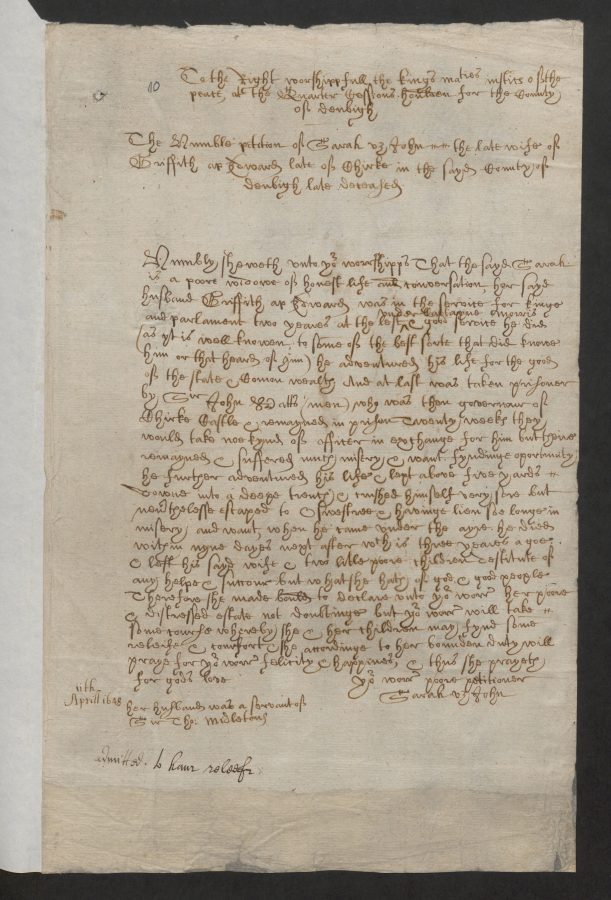 10
To the Right worshippfull the kings maties iustics of the
peace at the Quarter Sessions houlden for the County
of denbigh
The Humble petition of Sarah vz John the late wife of
Griffith ap Edward late of Chirke in the sayd County of
denbigh late deceased
Humbly sheweth vnto yor worrshipps That the sayd Sarah
is a poore widowe of honest life and conversation, her sayd
husband Griffith ap Edward was in the service for kinge
under Captayne Morris
and parlament two yeares at the lest & good service he did
(as yt is well knowen to some of the best sorte that did knowe
him or that heard of him) he adventured his life for the good
of the state & Comon wealth And at last was taken prisoner
by Sir John Watts (men) who was then governour of
Chirke Castle & remayned in prison Twenty weeks they
would take noe kynd of officer in exchange for him but there
remayned & suffered much misery & want, fyndinge oportunity
he further adventured his life & lept above five yards
downe into a deepe trench & crushed himself very sore but
neverthelesse escaped to Oswestree & havinge lien soe longe in
misery and want, when he came vnder the ayre he died
within nyne dayes next after wch is three yeares agoe
& left his sayd wife & two litle poore children destitute of
any helpe & succour but what she hath of god & good people
Therefore she made bould to declare vnto yor worrs her poore
& distressed estate not doubtinge but yor worrs will take
some course whereby she & her children may fynd some
releife & comfort & she accordinge to her bounden duty will
praye for yor worrs felicity & happines, & thus she prayeth
for gods love yor worrs poore petitioner
Sarah vz John
11th
Aprill 1648
her husband was a servant of
Sir Tho: Midletons
admitted to haue releefe